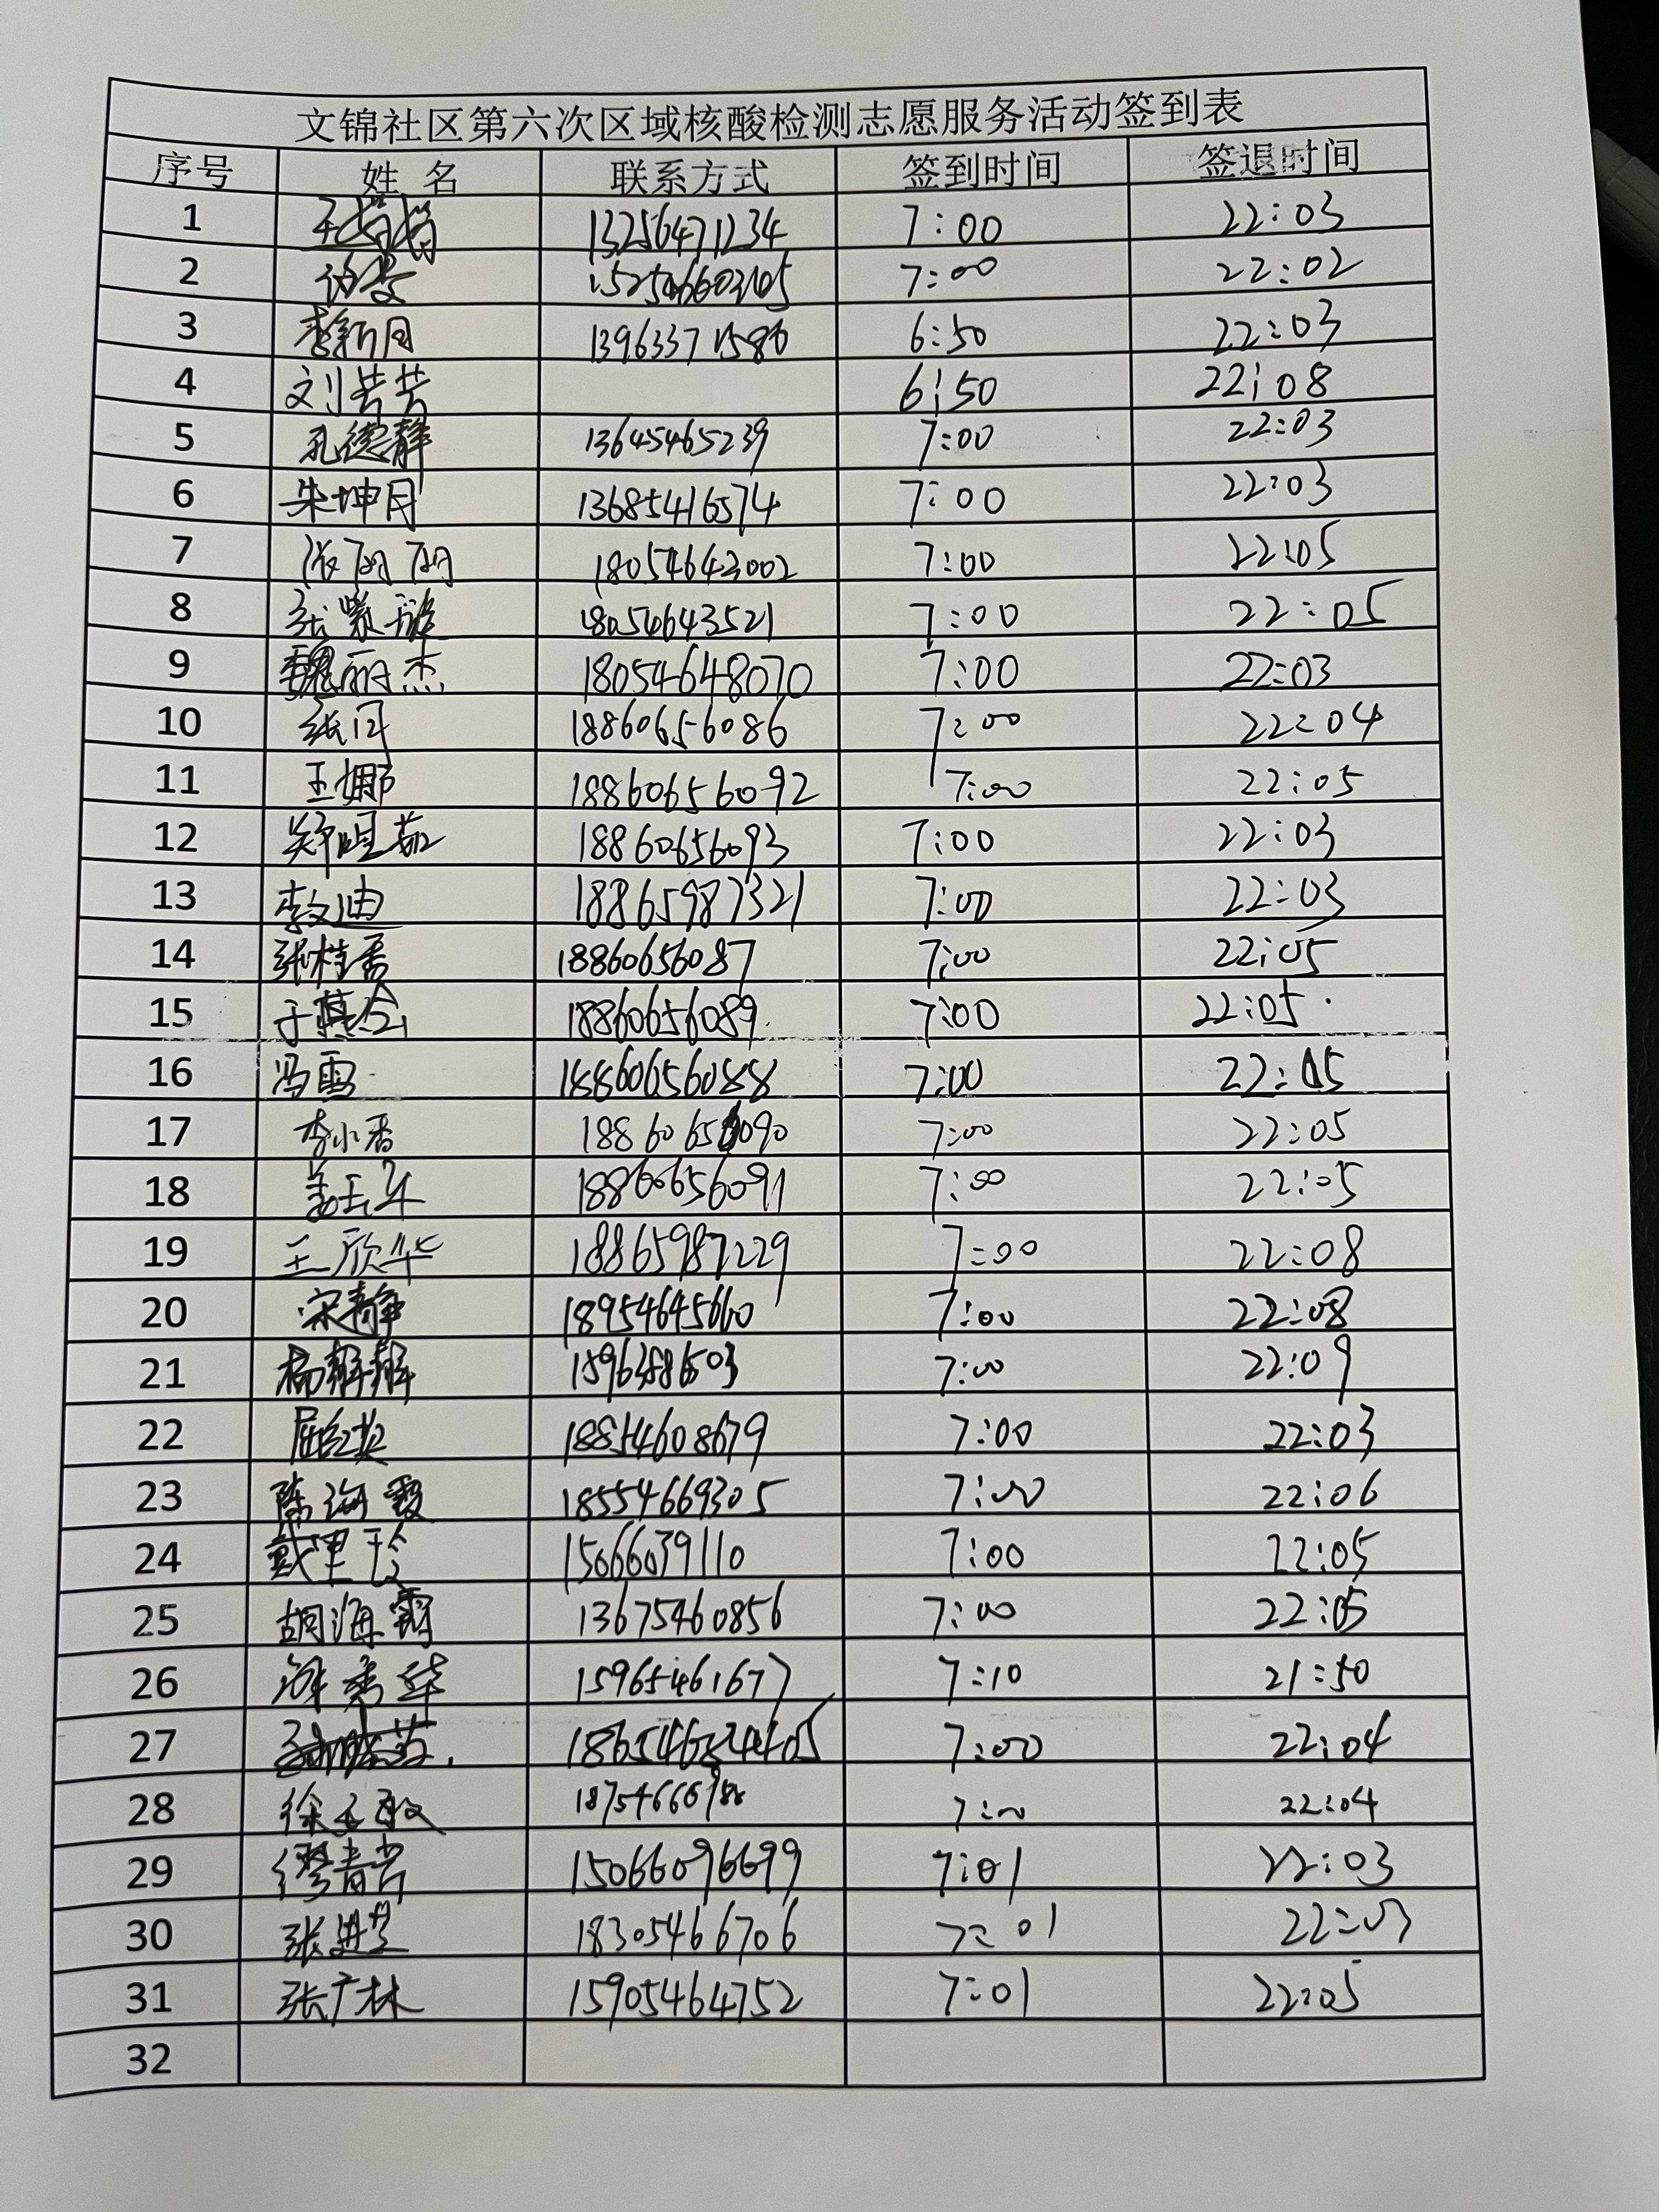 文锦社区第六次区域核酸检测志愿服务活动签到表
序号 姓 名 联系方式 签到时间 签退时间
1 13256471234 7:00 22:03
2 7:00 22:02
3 李新月 13963371586 6:50 22:03
4 刘芸芸 6:50 22:08
5 孔德静 13645465239 7:00 22:03
6 朱坤月 13685416574 7:00 22:03
7 18054643002 7:00 22:05
8 张紫薇 18054643521 7:00 22:05
9 魏丽杰 18054648070 7:00 22:03
10 18860656086 7:00 22:04
11 王娜 18860656092 7:00 22:05
12 18860656093 7:00 22:03
13 李文迪 18865987321 7:00 22:03
14 张桂香 18860656087 7:00 22:05
15 18860656089 7:00 22:05
16 冯雪 18860656088 7:00 22:05
17 李小香 18860656090 7:00 22:05
18 姜玉华 18860656091 7:00 22:05
19 王欣华 18865987229 7:00 22:08
20 宋静 18954645660 7:00 22:08
21 7:00 22:09
22 屈红英 18854608679 7:00 22:03
23 陈海霞 18554669305 7:00 22:06
24 15066039110 7:00 22:05
25 胡海霞 13675460856 7:00 22:05
26 15965461677 7:10 21:50
27 7:00 22:04
28 徐玉敏 7:00 22:04
29 15066096699 7:01 22:03
30 18305466706 7:01 22:03
31 张广林 15905464752 7:01 22:05
32